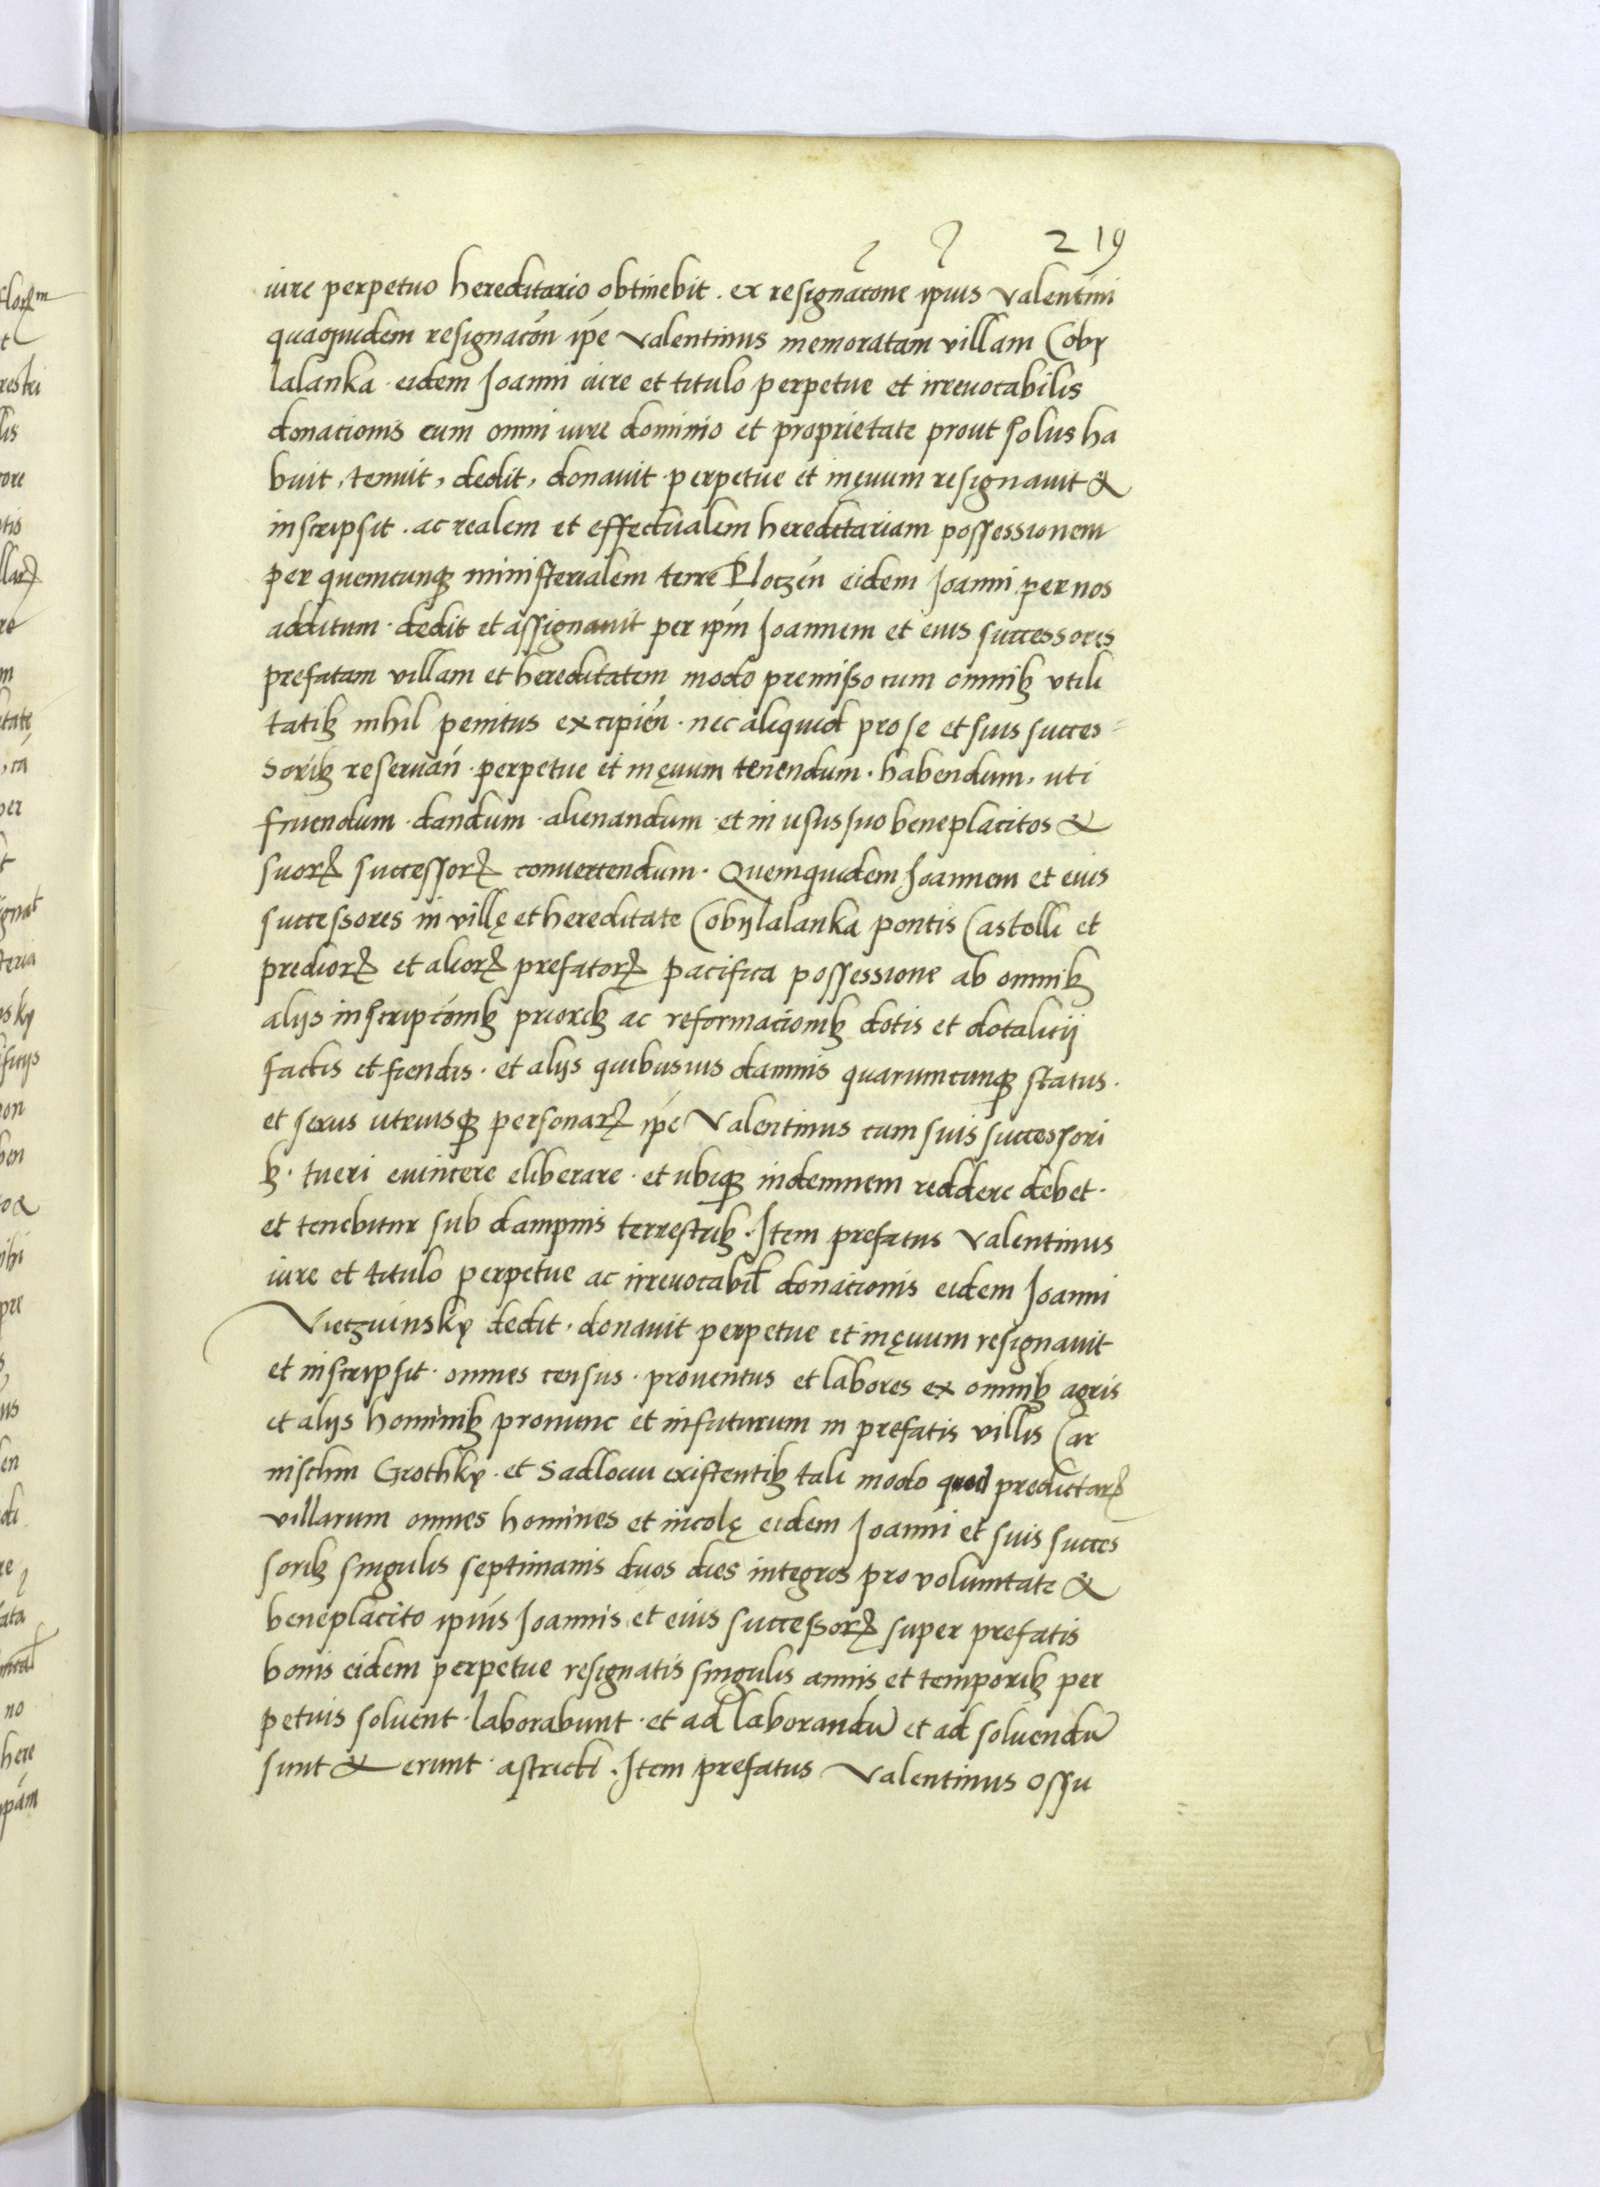 219
iure perpetuo hereditario obtinebit . ex resignacōne ipīus Valentini
quaquidem resignacōn̄ ip̄e Valentinus memoratam villam Coby
lalanka . eidem Joanni iure et titulo perpetue et irreuocabilis
donacionis cum omni iure dominio et proprietate prout solus ha
buit , tenuit , dedit , donauit . perpetue et in ęuum resignauit &
inscripsit . ac realem et effectualem hereditariam possessionem
per quemcunqꝫ ministerialem terre Ploczen̄ eidem Joanni per nos
additum . dedit et assignauit per ip̄m Joannem et eius successores
prefatam villam et hereditatem modo premisso cum omnibꝫ vtili
tatibꝫ nihil penitus excipien̄ . nec aliquid pro se et suis succes=
soribꝫ reseruan̄ . perpetue et in ęuum tenendum . habendum , uti
fruendum . dandum . alienandum . et in usus suo beneplacitos &
suorꝝ successorꝝ conuertendum . Quemquidem Joannem et eius
successores in villę et hereditate Cobylalanka pontis Castelli et
prediorꝝ et aliorꝝ prefatorꝝ pacifica possessione ab omnibꝫ
alijs inscripcōnibꝫ prioribꝫ ac reformacionibꝫ dotis et dotalicij
factis et fiendis . et alijs quibusuis damnis quarumcunqꝫ status .
et sexus utriusqꝫ personarꝝ ip̄e Valentinus cum suis successori
bꝫ . tueri euincere eliberare . et ubiqꝫ indemnem reddere debet .
et tenebitur sub dampnis terrestribꝫ . Item prefatus Valentinus
iure et titulo perpetue ac irreuocabił donacionis eidem Joanni
Vieczuinskÿ dedit . donauit perpetue et in ęuum resignauit
et inscripsit . omnes census . prouentus et labores ex omnibꝫ agris
et alijs hominibꝫ pronunc et infuturum in prefatis villis Car
nischin Grothkÿ . et Sadlouu existentibꝫ tali modo quod predictarꝝ
villarum omnes homines et incolę eidem Joanni et suis succes
soribꝫ singulis septimanis duos dies integros pro voluntate &
beneplacito ipīus Joannis et eius successorꝝ super prefatis
bonis eidem perpetue resignatis singulis annis et temporibꝫ per
petuis soluent . laborabunt . et ad laborandū et ad soluendū
sunt & erunt . astricti . Item prefatus Valentinus Ossu